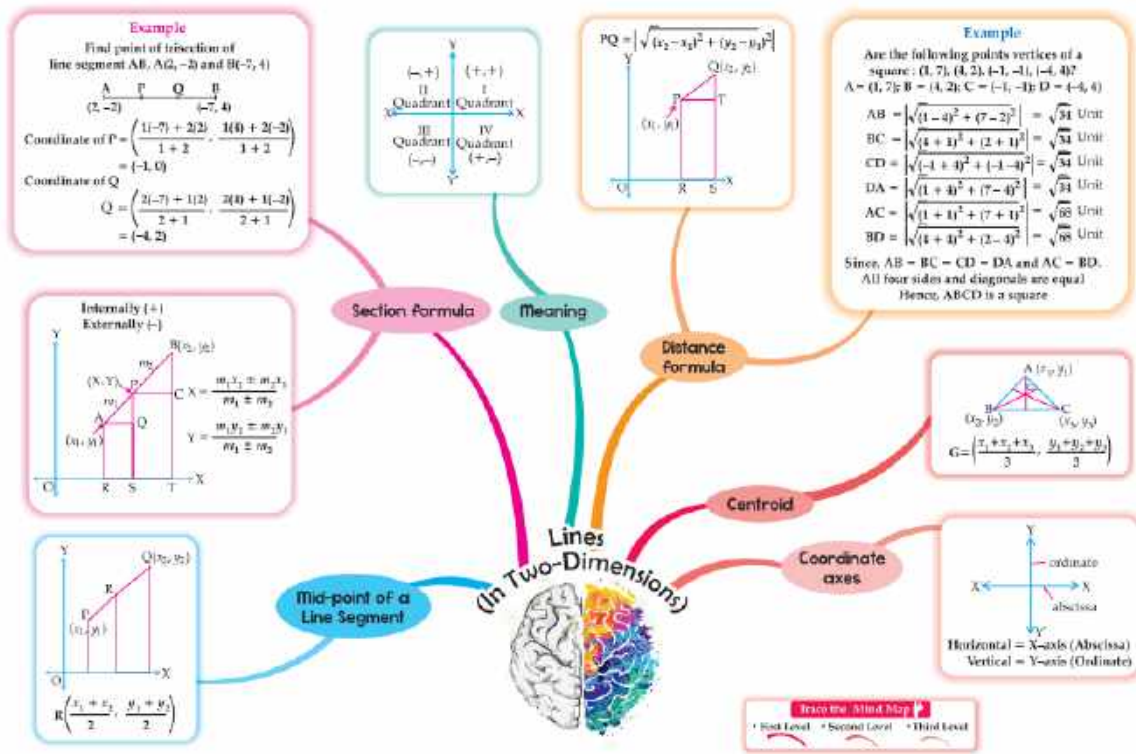 Example
Find point of trisection of
line segment AB, A(2, −2) and B(−7, 4)
A P Q B
(2, −2) (−7, 4)
Coordinate of P = ( 1(−7) + 2(2) / 1 + 2 , 1(4) + 2(−2) / 1 + 2 )
= (−1, 0)
Coordinate of Q
Q = ( 2(−7) + 1(2) / 2 + 1 , 2(4) + 1(−2) / 2 + 1 )
= (−4, 2)
Y
(−,+) (+,+)
II I
Quadrant Quadrant
X' X
III IV
Quadrant Quadrant
(−,−) (+,−)
Y'
PQ = |√(x₂−x₁)² + (y₂−y₁)²|
Y
Q(x₂, y₂)
P T
(x₁, y₁)
O R S X
Example
Are the following points vertices of a
square : (1, 7), (4, 2), (−1, −1), (−4, 4)?
A = (1, 7); B = (4, 2); C = (−1, −1); D = (−4, 4)
AB = |√(1−4)² + (7−2)²| = √34 Unit
BC = |√(4 + 1)² + (2 + 1)²| = √34 Unit
CD = |√(−1 + 4)² + (−1 −4)²| = √34 Unit
DA = |√(1 + 4)² + (7−4)²| = √34 Unit
AC = |√(1 + 1)² + (7 + 1)²| = √68 Unit
BD = |√(4 + 4)² + (2 − 4)²| = √68 Unit
Since, AB = BC = CD = DA and AC = BD.
All four sides and diagonals are equal
Hence, ABCD is a square
Section formula
Meaning
Distance
formula
Internally (+)
Externally (−)
Y
B(x₂, y₂)
m₂
(X, Y)
P C
m₁
A Q
(x₁, y₁)
O R S T X
X = m₁x₂ ± m₂x₁ / m₁ ± m₂
Y = m₁y₂ ± m₂y₁ / m₁ ± m₂
A (x₁, y₁)
B C
(x₂, y₂) (x₃, y₃)
G = ( x₁+x₂+x₃ / 3 , y₁+y₂+y₃ / 3 )
Centroid
Coordinate
axes
Y
ordinate
X' X
abscissa
Y'
Horizontal = X–axis (Abscissa)
Vertical = Y–axis (Ordinate)
Lines
(In Two-Dimensions)
Mid-point of a
Line Segment
Y
Q(x₂, y₂)
R
P
(x₁, y₁)
O X
R( x₁ + x₂ / 2 , y₁ + y₂ / 2 )
Trace the Mind Map
• First Level • Second Level • Third Level